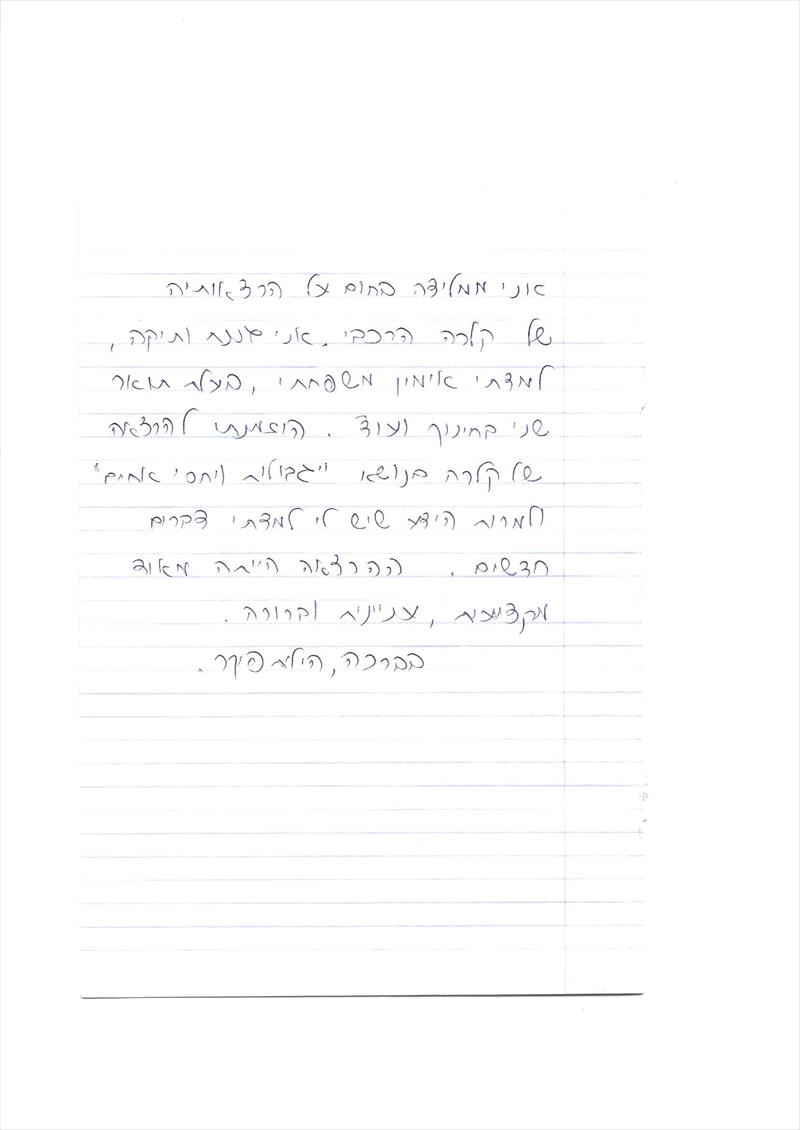 אני ממליצה בחום על הרצאותיה
של קלרה הרכבי. אני גננת ותיקה,
למדתי אימון משפחתי, בעלת תואר
שני בחינוך ועוד. הוזמנתי להרצאה
של קלרה בנושא "גבולות ויחסי אחים"
ולמרות הידע שיש לי למדתי דברים
חדשים. ההרצאה הייתה מאוד
מקצועית, עניינית וברורה.
בברכה, הילית פיקר.